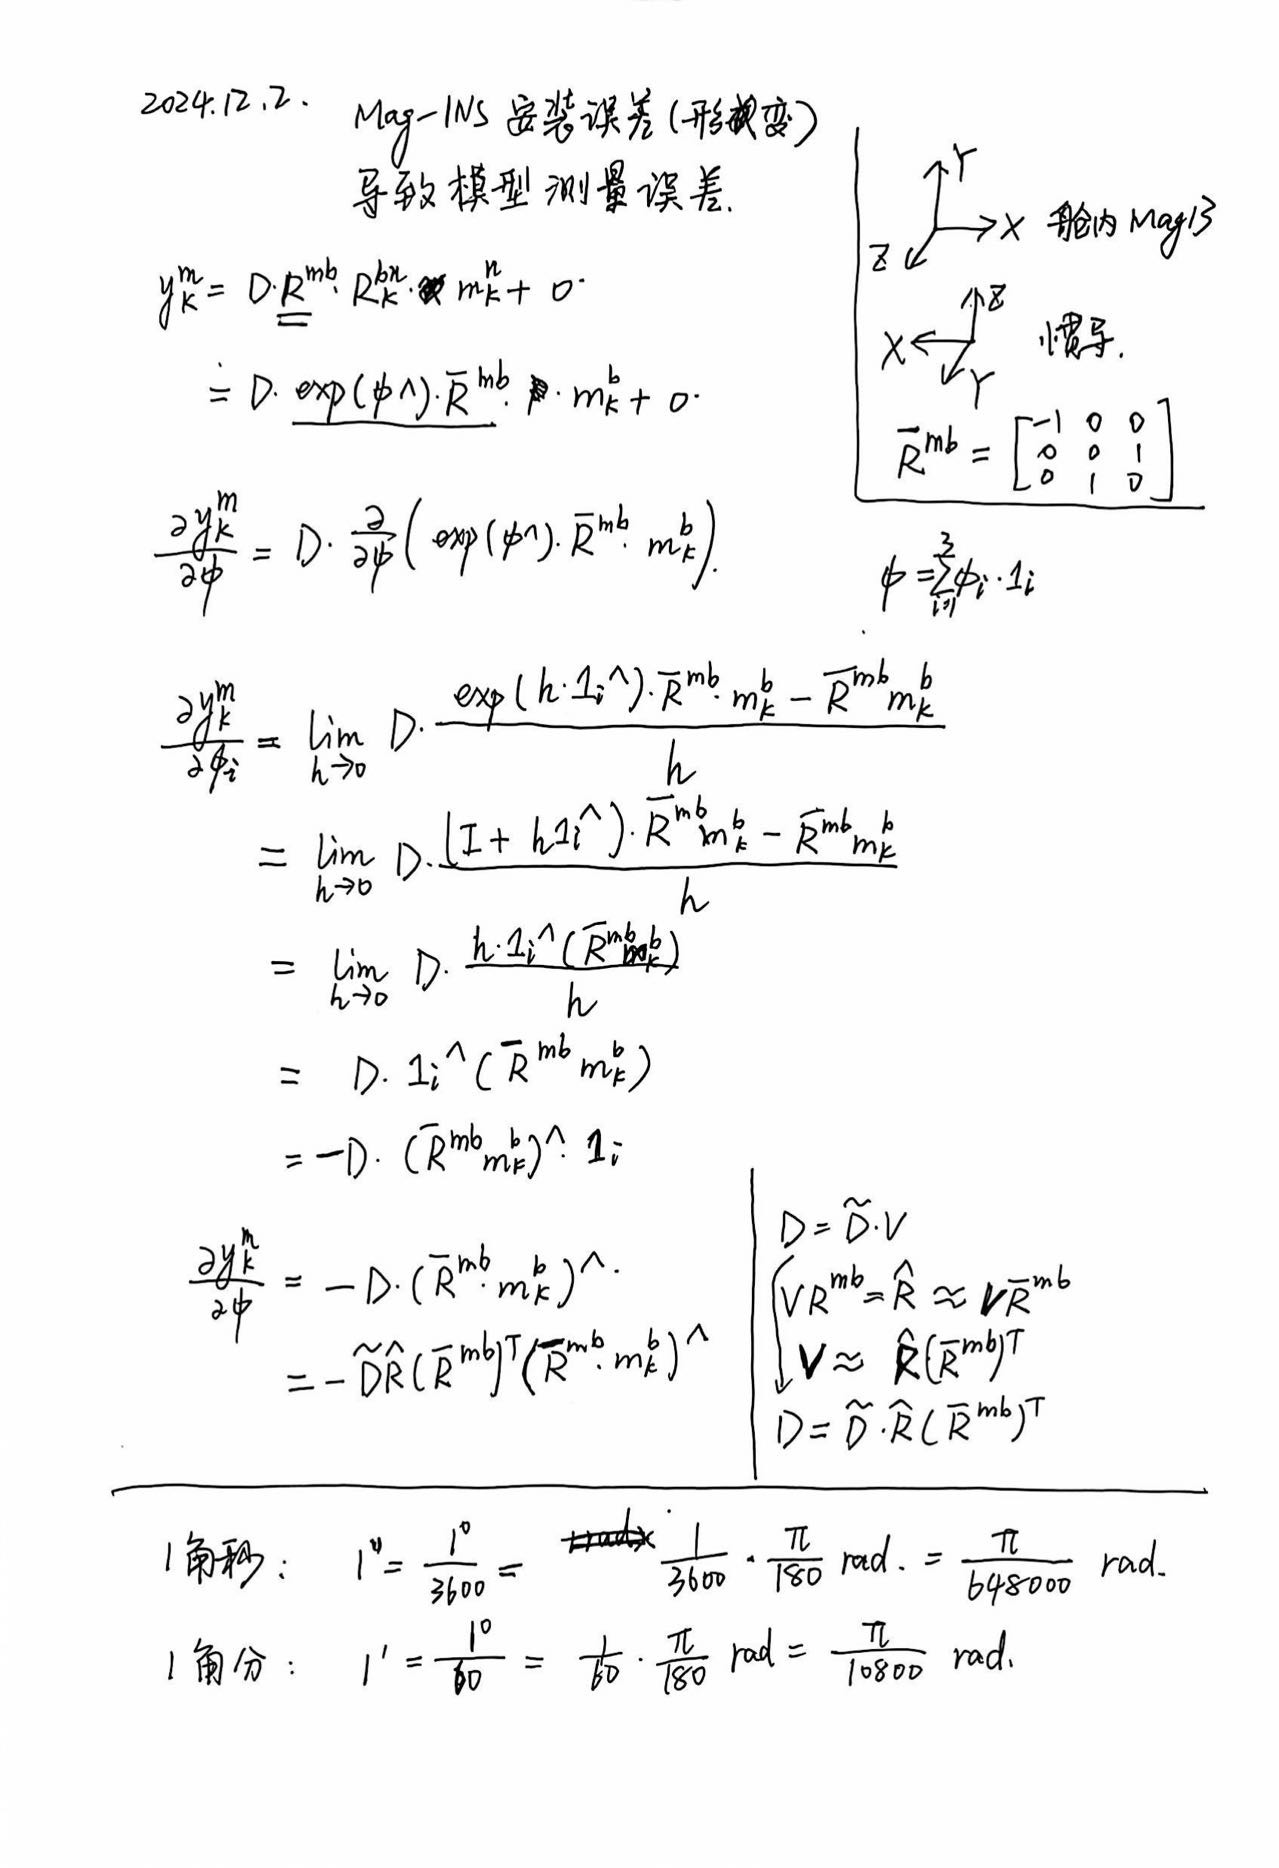 2024.12.2.
Mag-INS 安装误差(形变)
导致模型测量误差.
Y
X 舱内 Mag13
Z
Z
X 惯导.
Y
R̄^{mb} = [-1 0 0
0 0 1
0 1 0]
y_k^m = D·R^{mb}·R_k^{bn}·m_k^n + o·
≐ D·exp(φ∧)·R̄^{mb}·m_k^b + o·
∂y_k^m/∂φ = D·∂/∂φ(exp(φ∧)·R̄^{mb}·m_k^b).
φ = Σ_{i=1}^{3} φ_i·1_i
∂y_k^m/∂φ_i = lim_{h→0} D·(exp(h·1_i^∧)·R̄^{mb}·m_k^b − R̄^{mb}m_k^b)/h
= lim_{h→0} D·((I + h1_i^∧)·R̄^{mb}m_k^b − R̄^{mb}m_k^b)/h
= lim_{h→0} D·(h·1_i^∧(R̄^{mb}m_k^b))/h
= D·1_i^∧(R̄^{mb}m_k^b)
= −D·(R̄^{mb}m_k^b)^∧·1_i
∂y_k^m/∂φ = −D·(R̄^{mb}·m_k^b)^∧.
= −D̃R̂(R̄^{mb})^T(R̄^{mb}·m_k^b)^∧
D = D̃·V
VR^{mb} = R̂ ≈ VR̄^{mb}
V ≈ R̂(R̄^{mb})^T
D = D̃·R̂(R̄^{mb})^T
1角秒: 1″ = 1°/3600 = 1/3600 · π/180 rad. = π/648000 rad.
1角分: 1′ = 1°/60 = 1/60 · π/180 rad = π/10800 rad.